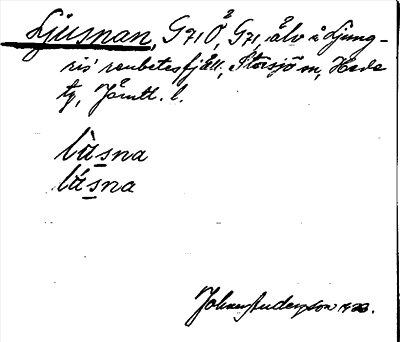 Ljusnan, G71Ö, G71, älv i Ljung-
ris' renbetesfjäll, Storsjö sn, Hede
tg, Jämtl. l.
làsna
lásna
Johan Anderson 1923.